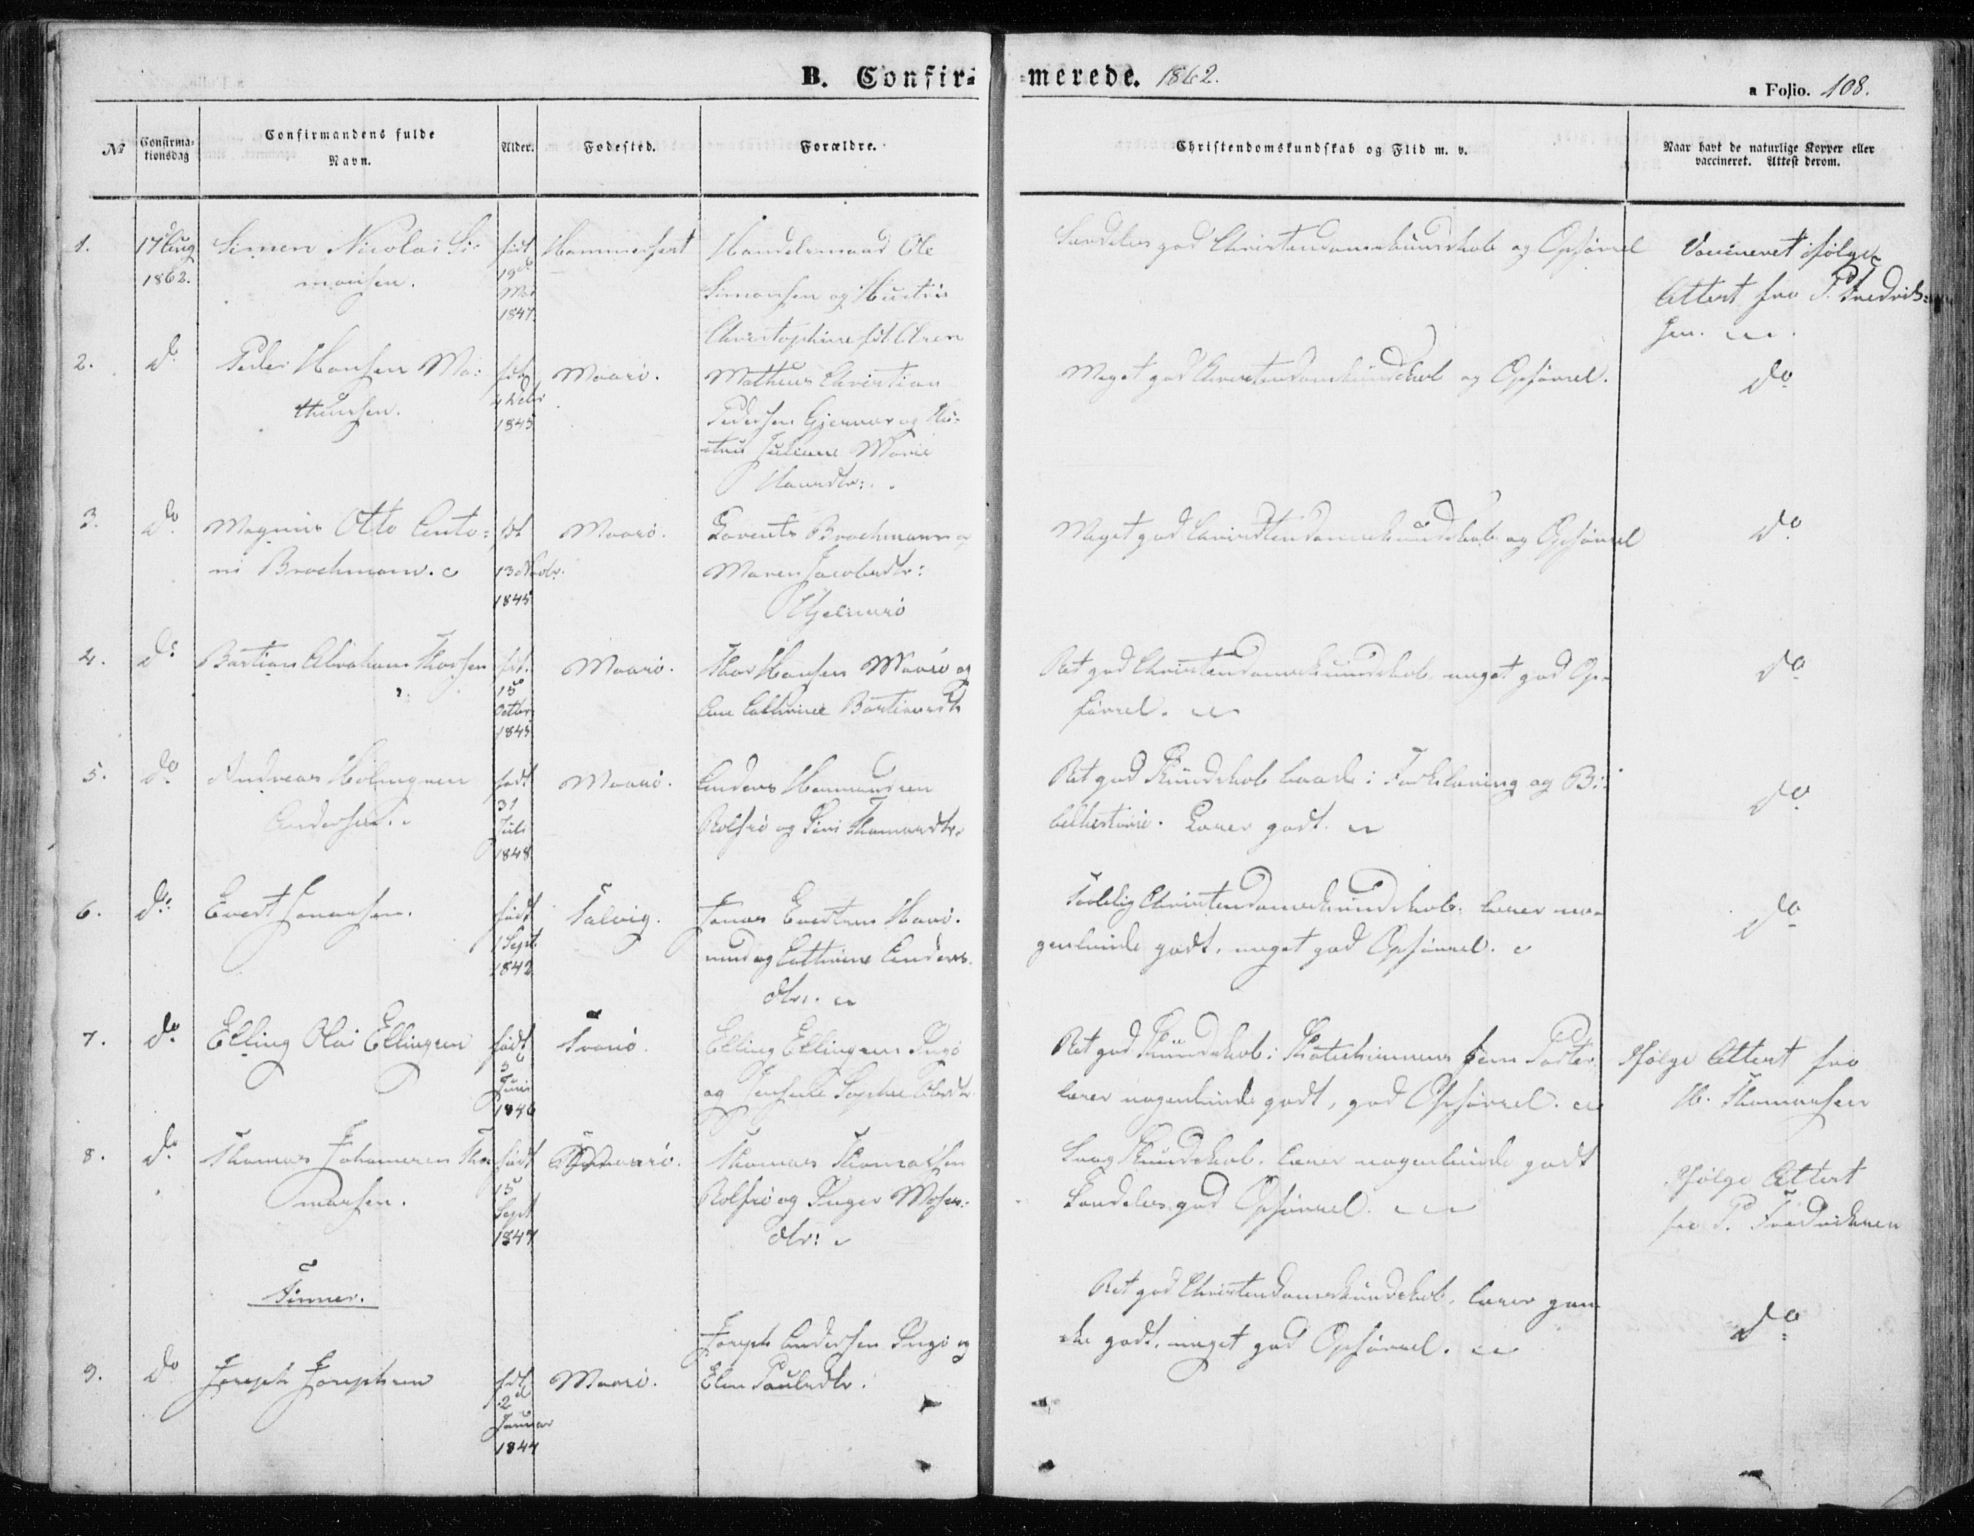 B. Confirmerede. 1862.
a Folio. 108.
№
Confirmationsdag
Confirmandens fulde Navn.
Alder.
Fødested.
Forældre.
Christendomskundskab og Flid m. v.
Naar havt de naturlige Kopper eller vaccineret. Attest derom.
1.
17 Aug
1862.
Simon Nicolai Si-
monsen.
født
19de
Mai
1847
Hammerfest
Handelsmand Ole
Simonsen og Hustru
Christophine
Særdeles god Christendomskundskab og Opførsel
Vaccineret ifølge
Attest fra P. Fredrik-
sen.
2.
do
Peder Hansen Ma-
thisen.
født
1845
Maasø.
Mathias Christian
Pedersen Gjesvær og Hu-
stru Juliane Marie
Hansdtr:
Meget god Christendomskundskab og Opførsel.
do
3.
do
Magnus Otto Anto-
ni Brochmann.
født
13 Novbr.
1845
Maasø.
Lorents Brochmann og
Maren Jacobsdtr:
Hjelmsø
Meget god Christendomskundskab og Opførsel
do
4.
do
Bastian Abraham Thorsen
født
15
Octbr
1845
Maasø.
Thor Hansen Maasø og
Ane Cathrine Bastiansdtr
Ret god Christendomskundskab, meget god Op-
førsel.
do
5.
do
Andreas Holmgren
Andersen.
født
31
Juli
1848
Maasø.
Anders Amundsen
Rolfsø og Siri Thomasdtr.
Ret god Kundskab baade i Forklaring og Bi-
belhistorie. Læser godt.
do
6.
do
Evert Jonassen.
født
1 Sept.
1842
Talvig.
Jonas Evertsen Havø-
sund og Cathrine Anders-
dtr.
Taalelig Christendomskundskab, læser no-
genlunde godt, meget god Opførsel.
do
7.
do
Elling Olai Ellingsen
født
5
Juni
1846
Elling Ellingsen Ingø
og Sophie Olsdtr
Ret god Kundskab i Katechismens fem Parter
læser nogenlunde godt, god Opførsel.
Ifølge Attest fra
H. Thomassen
8.
do
Thomas Johannesen Tho-
massen.
født
15
Sept
1847
Thomas Thomassen
Rolfsø og Inger Moses-
dtr:
Svag Kundskab, læser nogenlunde godt
Særdeles god Opførsel.
Ifølge Attest
fra P. Fredriksen
Finner.
9.
do
Joseph Josephsen
født
2
Januar
1844
Maasø.
Joseph Andersen Ingø og
Elen Paulsdtr.
Ret god Christendomskundskab, læser gan-
ske godt, meget god Opførsel.
do